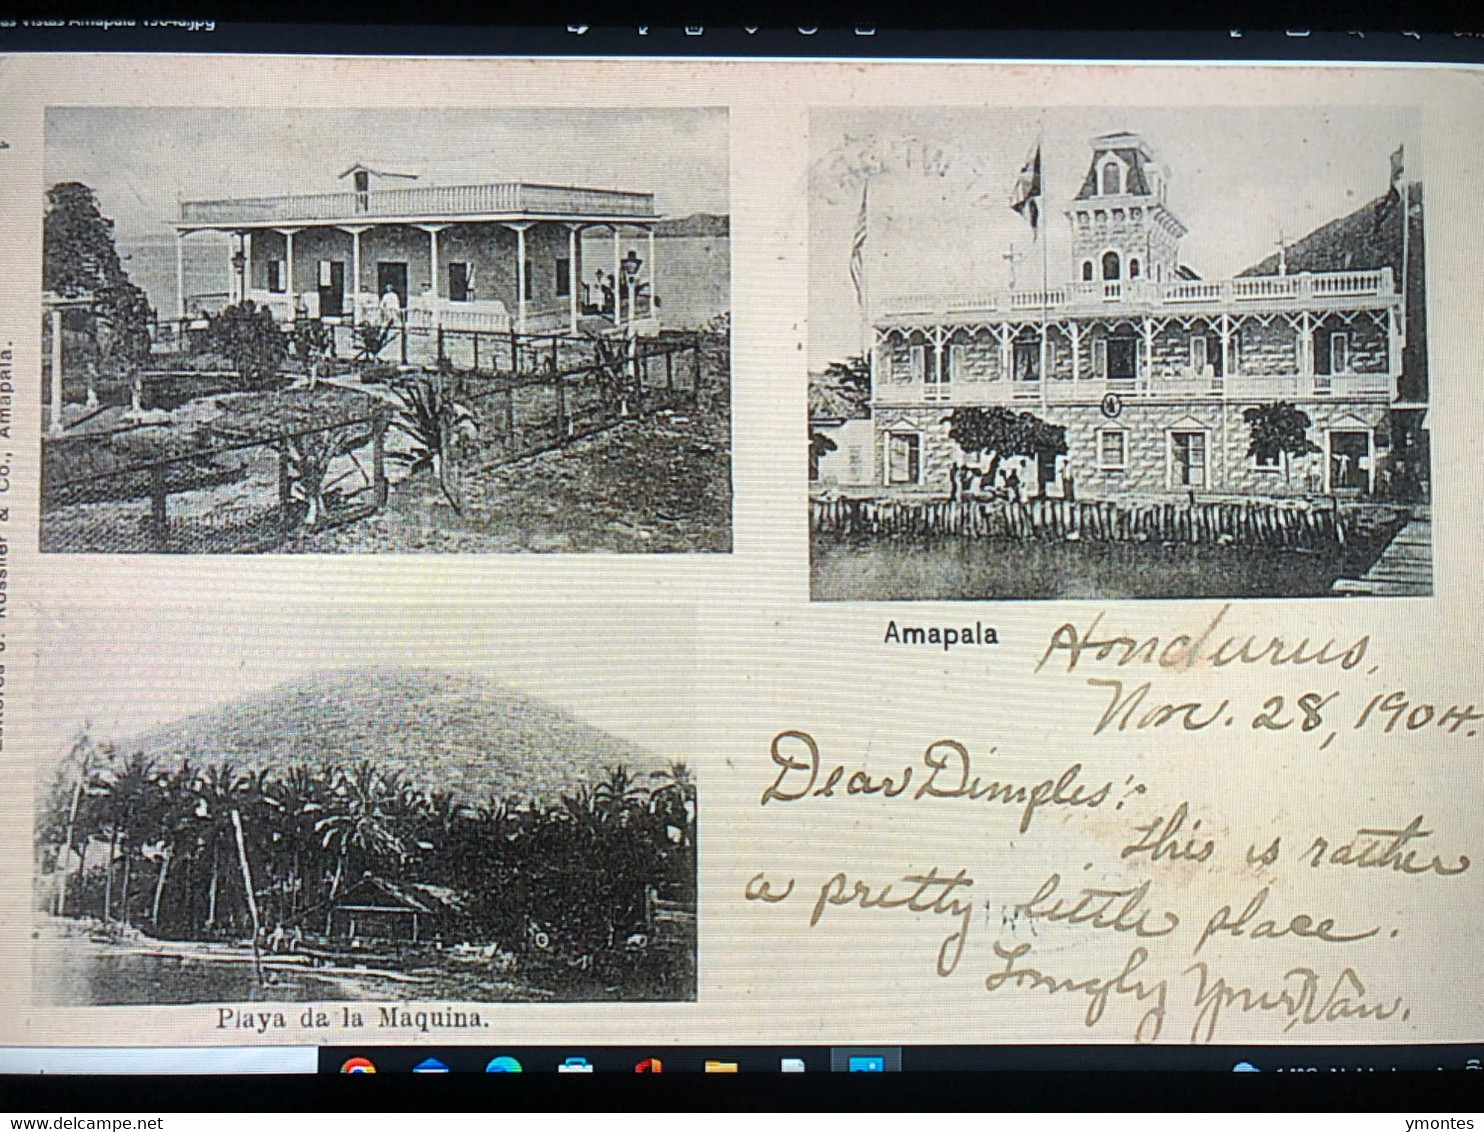 Vistas Amapala 1904a.jpg
Rössner & Co., Amapala.
Amapala
Honduras,
Nov. 28, 1904.
Dear Dimples:
This is rather
a pretty little place.
Lovingly Yours, Van.
Playa da la Maquina.
www.delcampe.net
ymontes